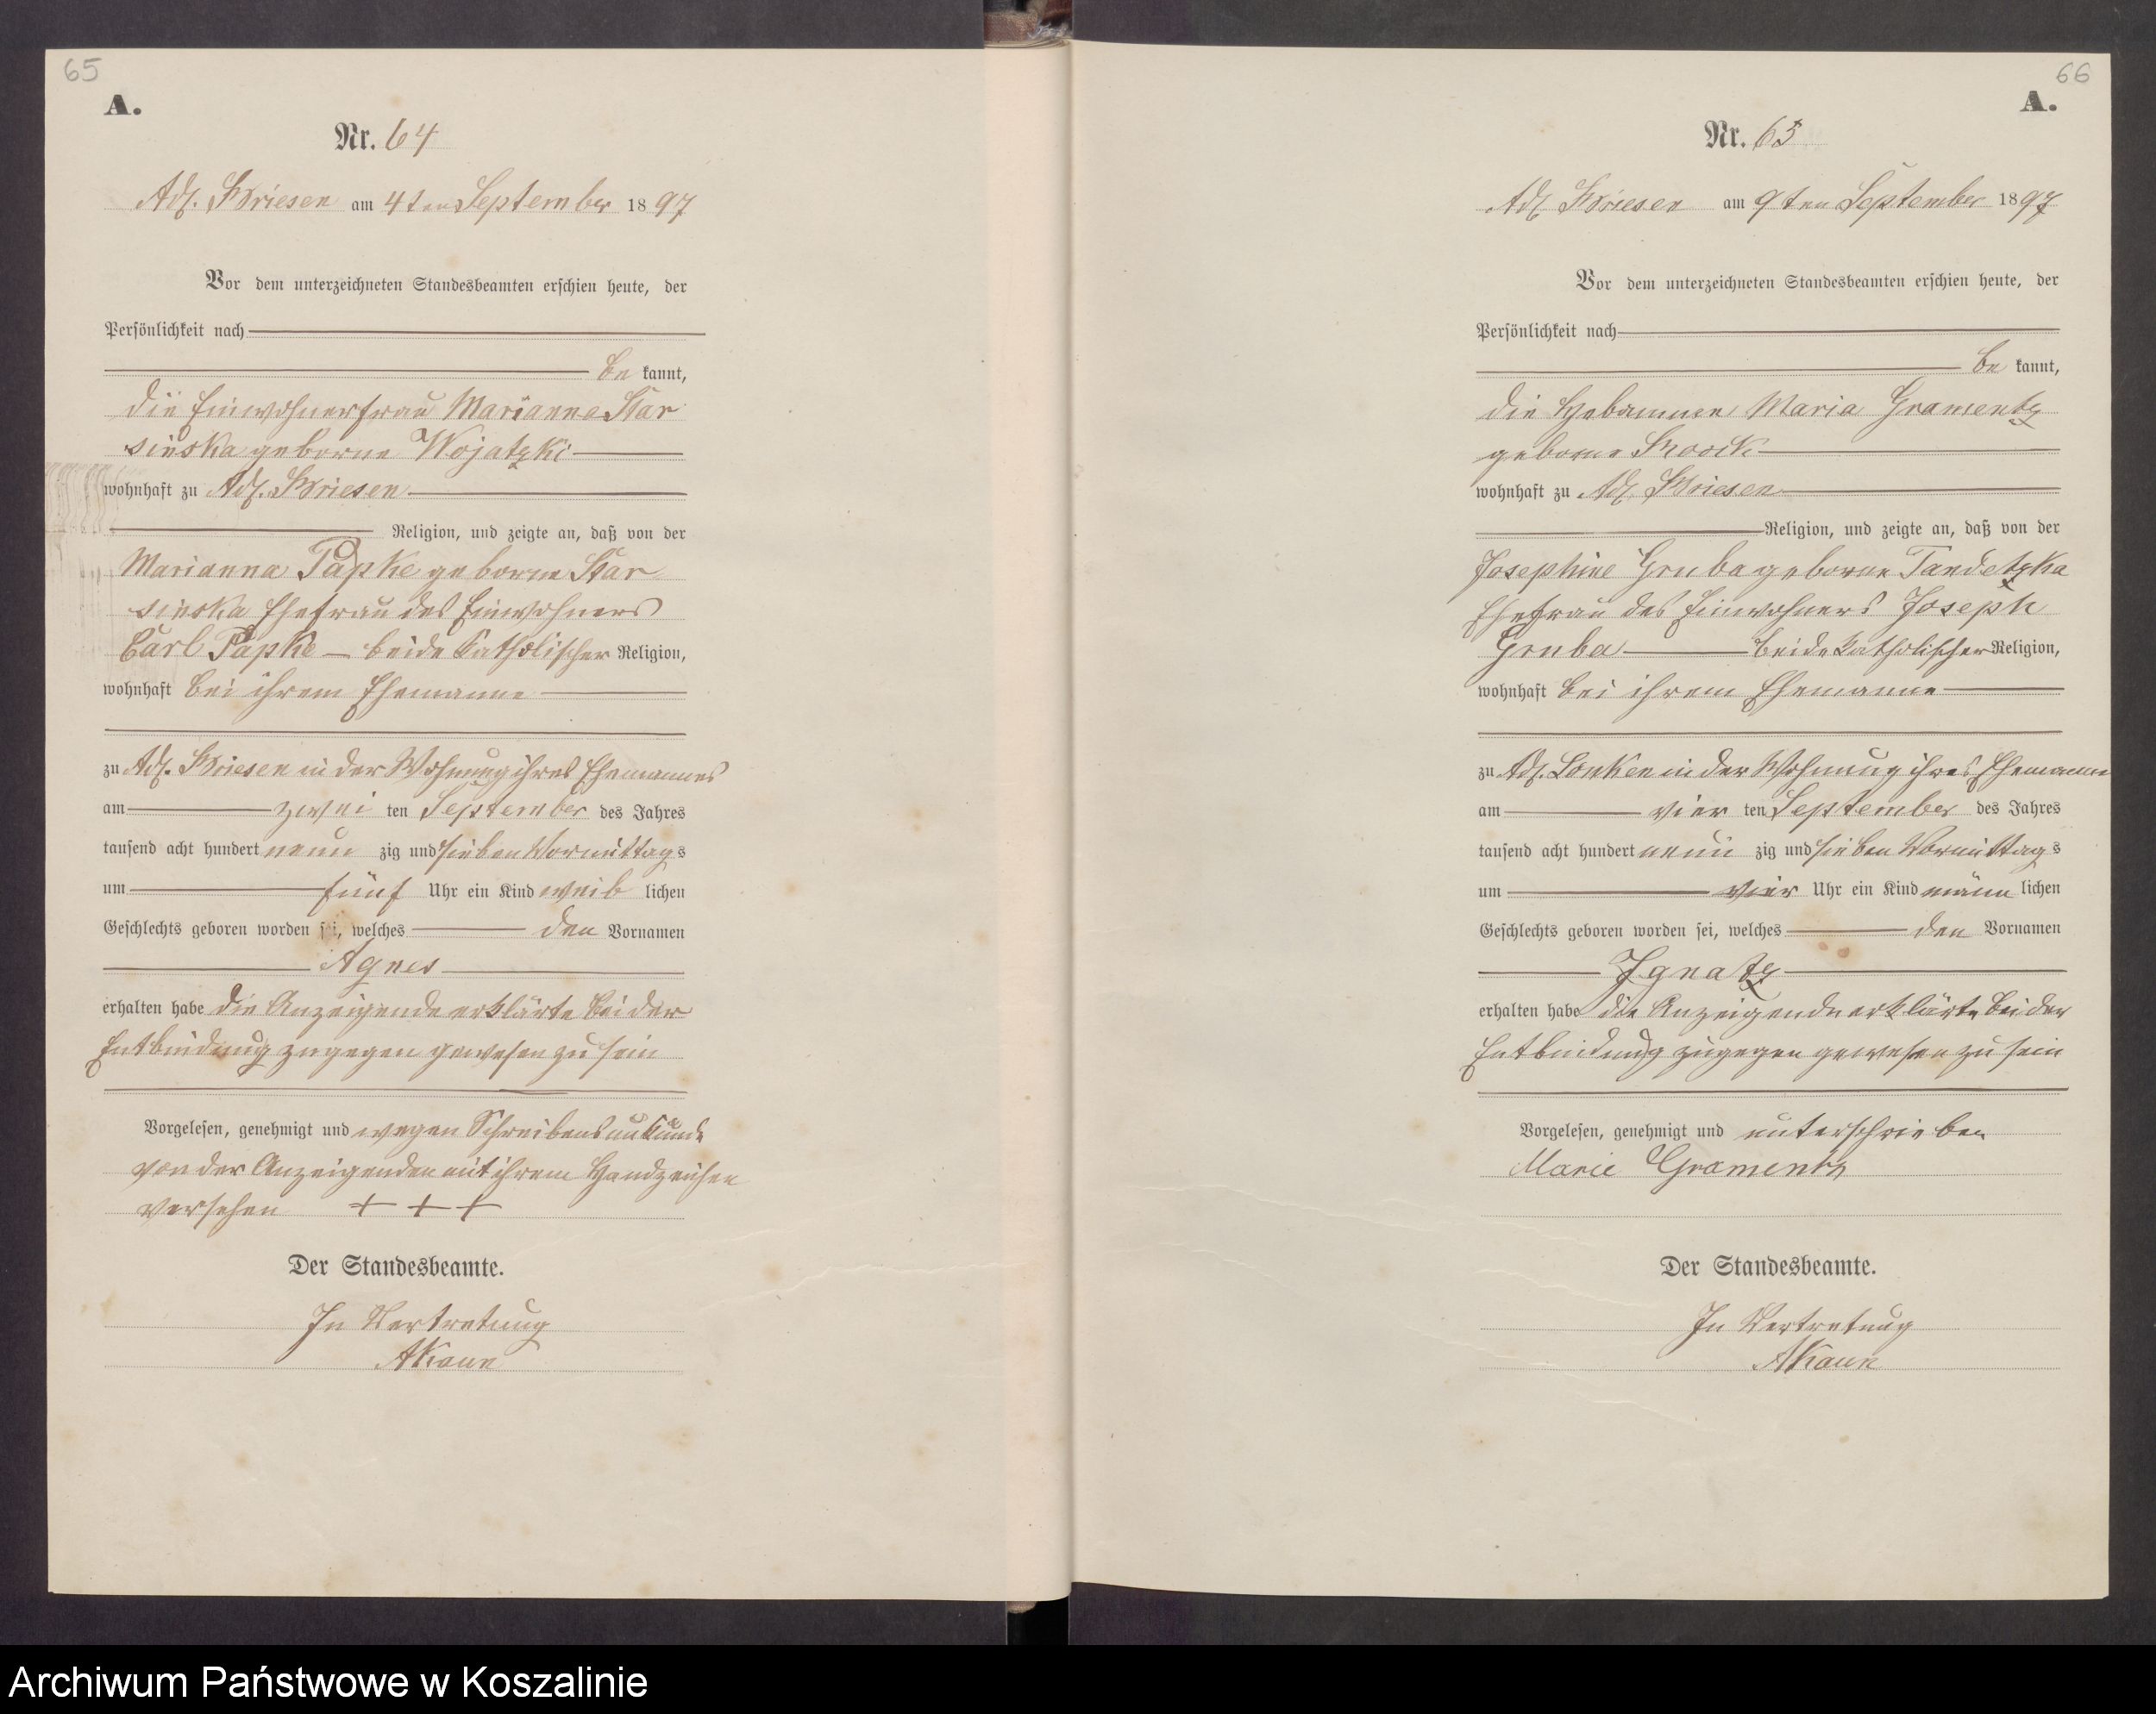 65
A.
Nr. 64
Adl. Briesen am 4ten September 1897
Vor dem unterzeichneten Standesbeamten erschien heute, der
Persönlichkeit nach
be kannt,
die Einwohnerfrau Marianne Star
sinska geborne Wojatzki
wohnhaft zu Adl. Briesen
Religion, und zeigte an, daß von der
Marianna Papke geborne Star
sinska Ehefrau des Einwohners
Carl Papke – beide katholischer Religion,
wohnhaft bei ihrem Ehemanne
zu Adl. Briesen in der Wohnung ihres Ehemannes
am zwei ten September des Jahres
tausend acht hundert neun zig und sieben Vormittags
um fünf Uhr ein Kind weib lichen
Geschlechts geboren worden sei, welches den Vornamen
Agnes
erhalten habe die Anzeigende erklärte bei der
Entbindung zugegen gewesen zu sein
Vorgelesen, genehmigt und wegen Schreibensunkunde
von der Anzeigenden mit ihrem Handzeichen
versehen + + +
Der Standesbeamte.
In Vertretung
AKaun
66
A.
Nr. 65
Adl Briesen am 9ten September 1897
Vor dem unterzeichneten Standesbeamten erschien heute, der
Persönlichkeit nach
be kannt,
die Hebamme Maria Gramentz
geborne
wohnhaft zu Adl. Briesen
Religion, und zeigte an, daß von der
Josephine Gruba geborne Tandetzka
Ehefrau des Einwohners Joseph
Gruba beide katholischer Religion,
wohnhaft bei ihrem Ehemanne
zu Adl. Lonken in der Wohnung ihres Ehemannes
am vier ten September des Jahres
tausend acht hundert neun zig und sieben Vormittags
um vier Uhr ein Kind männ lichen
Geschlechts geboren worden sei, welches den Vornamen
Ignatz
erhalten habe die Anzeigende erklärte bei der
Entbindung zugegen gewesen zu sein
Vorgelesen, genehmigt und unterschrieben
Marie Gramentz
Der Standesbeamte.
In Vertretung
AKaun
Archiwum Państwowe w Koszalinie